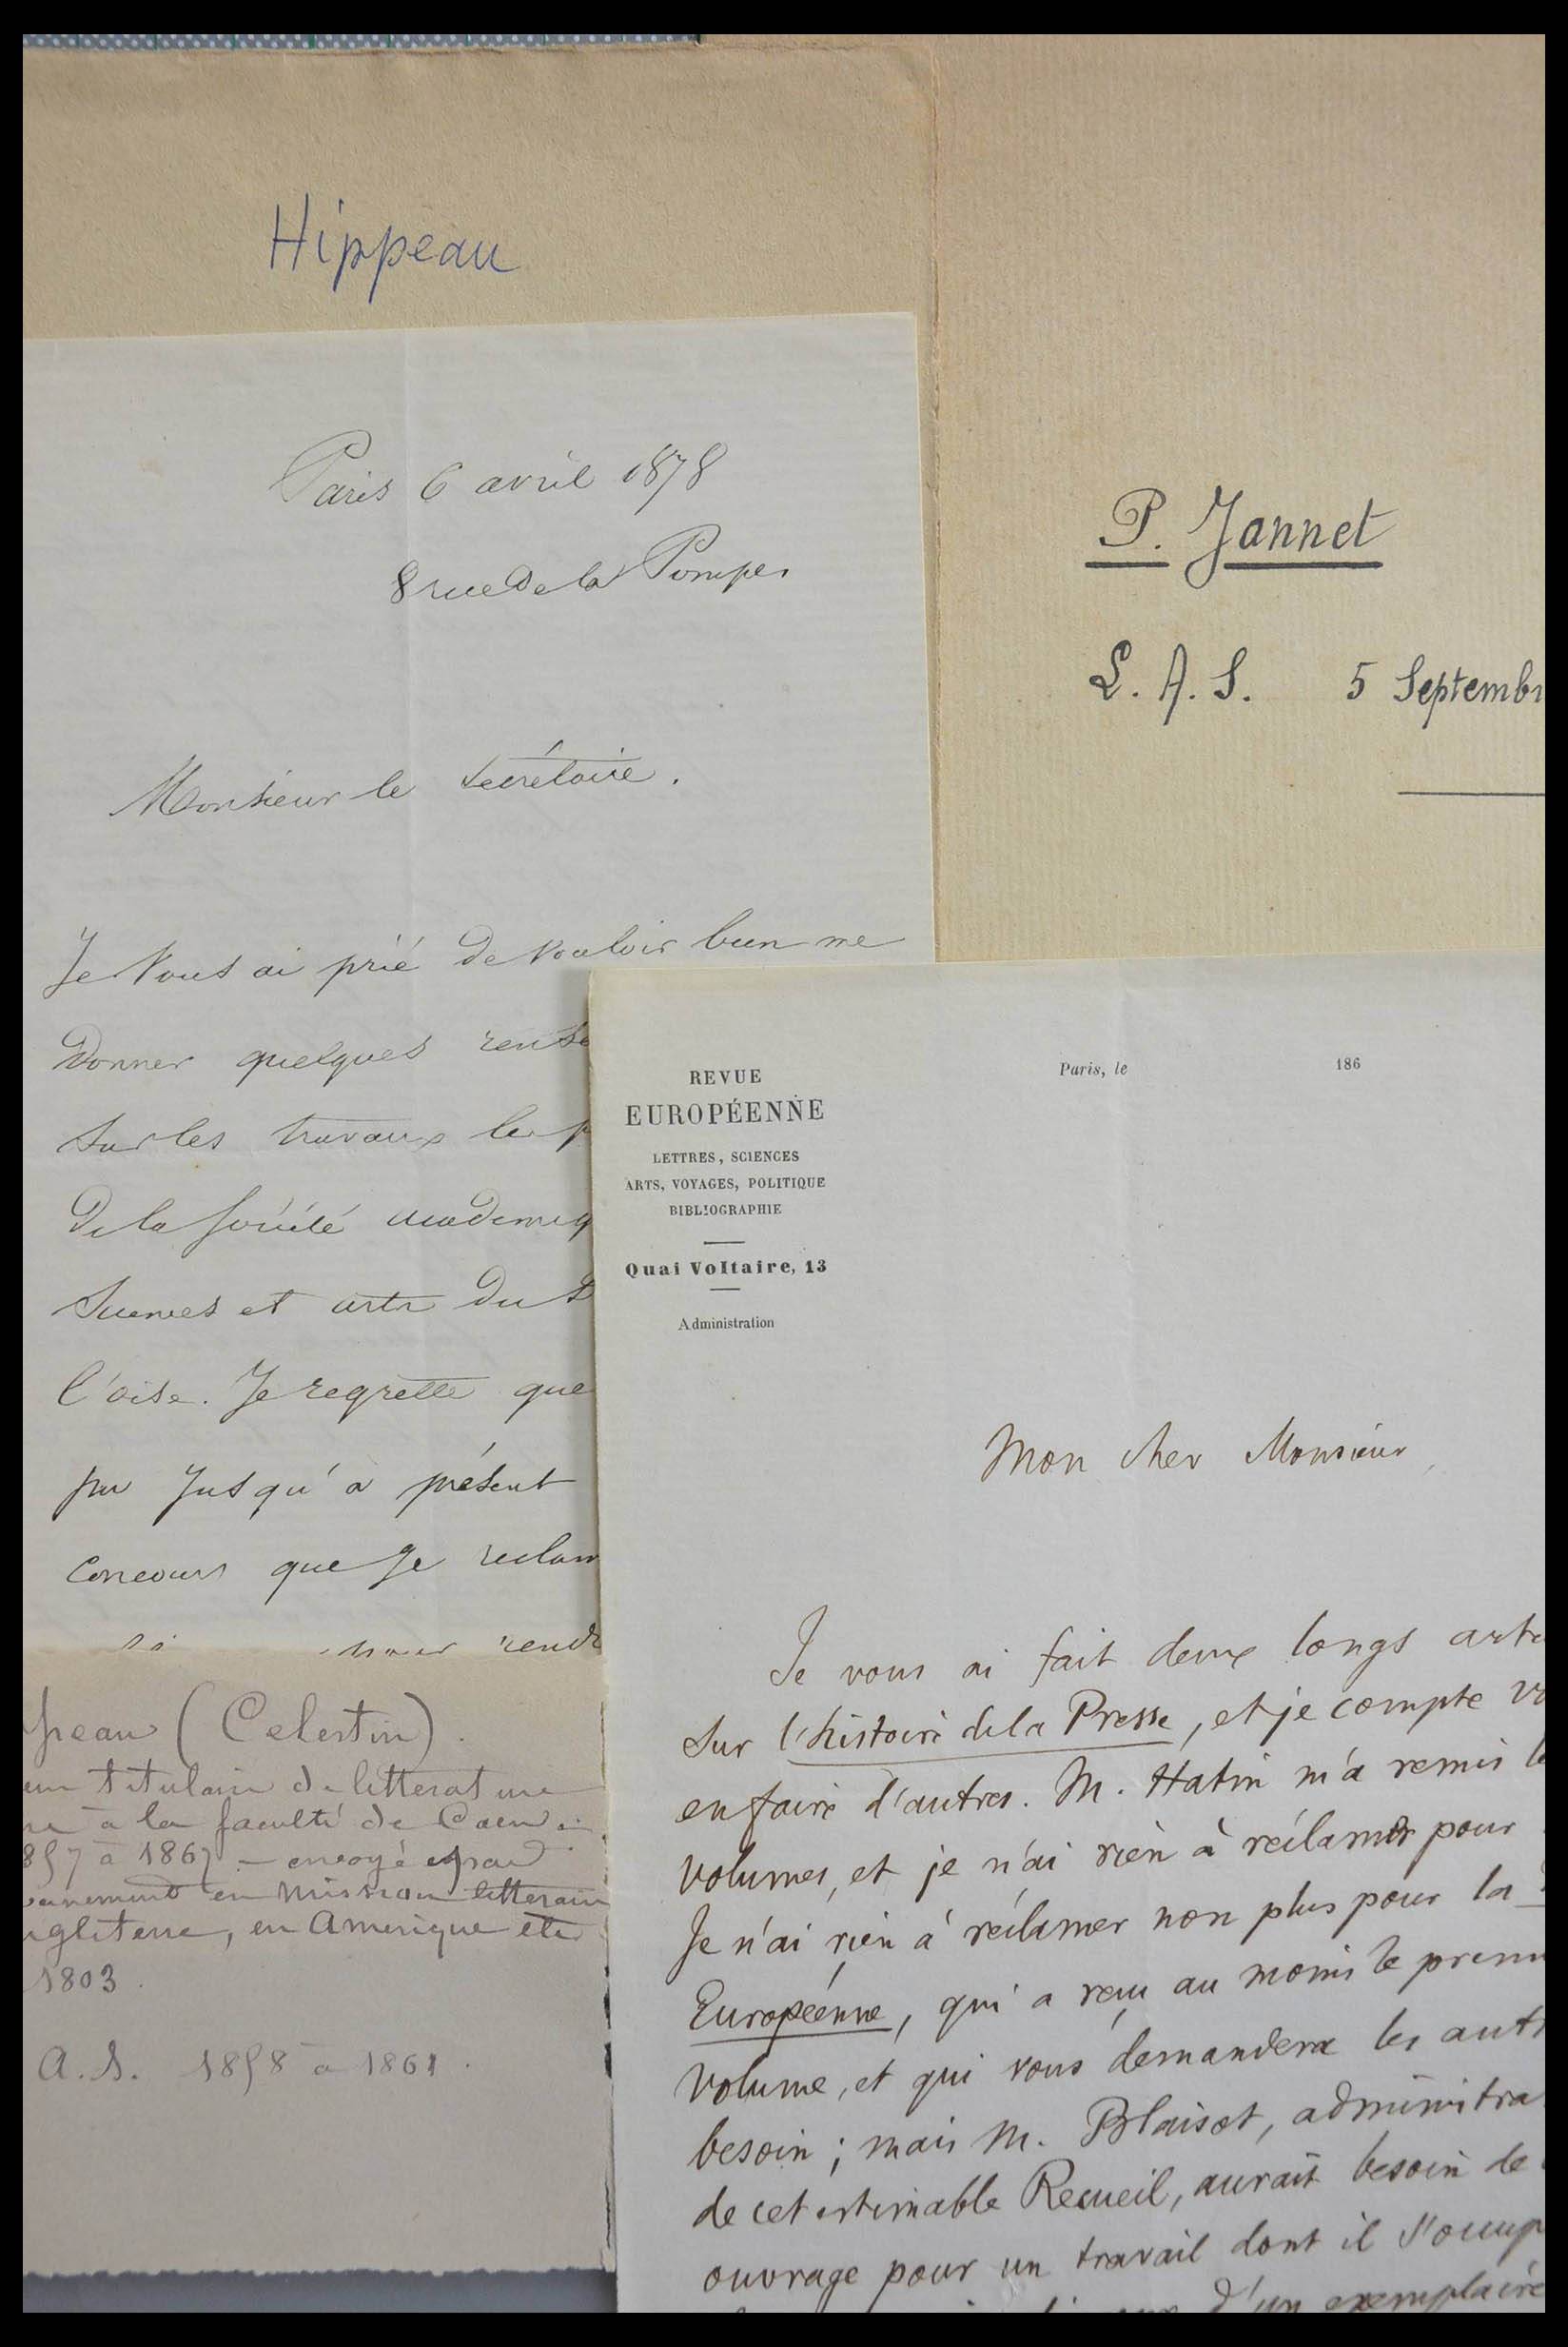 Hippeau
Paris 6 avril 1878
8 rue de la Pompe
Monsieur le Secrétaire.
Je vous ai prié de vouloir bien me
donner quelques
sur les travaux les
de la Société
Sciences et arts du
l'oise. Je regrette que
pu jusqu'à présent
concours que je
rendr
P. Jannet
L. A. S. 5 Septembr
peau (Celestin).
titulaire de litterature
à la faculté de Caen
à 1867 — envoyé
en mission litteraire
en Amerique etc
1803.
A. S. 1858 à 1861.
REVUE
EUROPÉENNE
LETTRES, SCIENCES
ARTS, VOYAGES, POLITIQUE
BIBLIOGRAPHIE
Quai Voltaire, 13
Administration
Paris, le 186
Mon cher Monsieur,
Je vous ai fait deux longs arti
sur l'histoire de la Presse, et je compte v
en faire d'autres. M. Hatin m'a remis le
volumes, et je n'ai rien à réclamer pour
Je n'ai rien à réclamer non plus pour la
Européenne, qui a reçu au moins le prem
volume, et qui vous demandera les aut
besoin ; mais M. Blaisot, administra
de cet estimable Recueil, aurait besoin de
ouvrage pour un travail dont il s'occup
d'un exemplaire